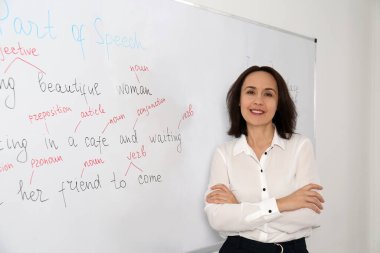 Part of Speech
adjective
noun
ng beautiful woman
preposition article noun conjunction verb
ting in a cafe and waiting
pronoun noun verb
her friend to come